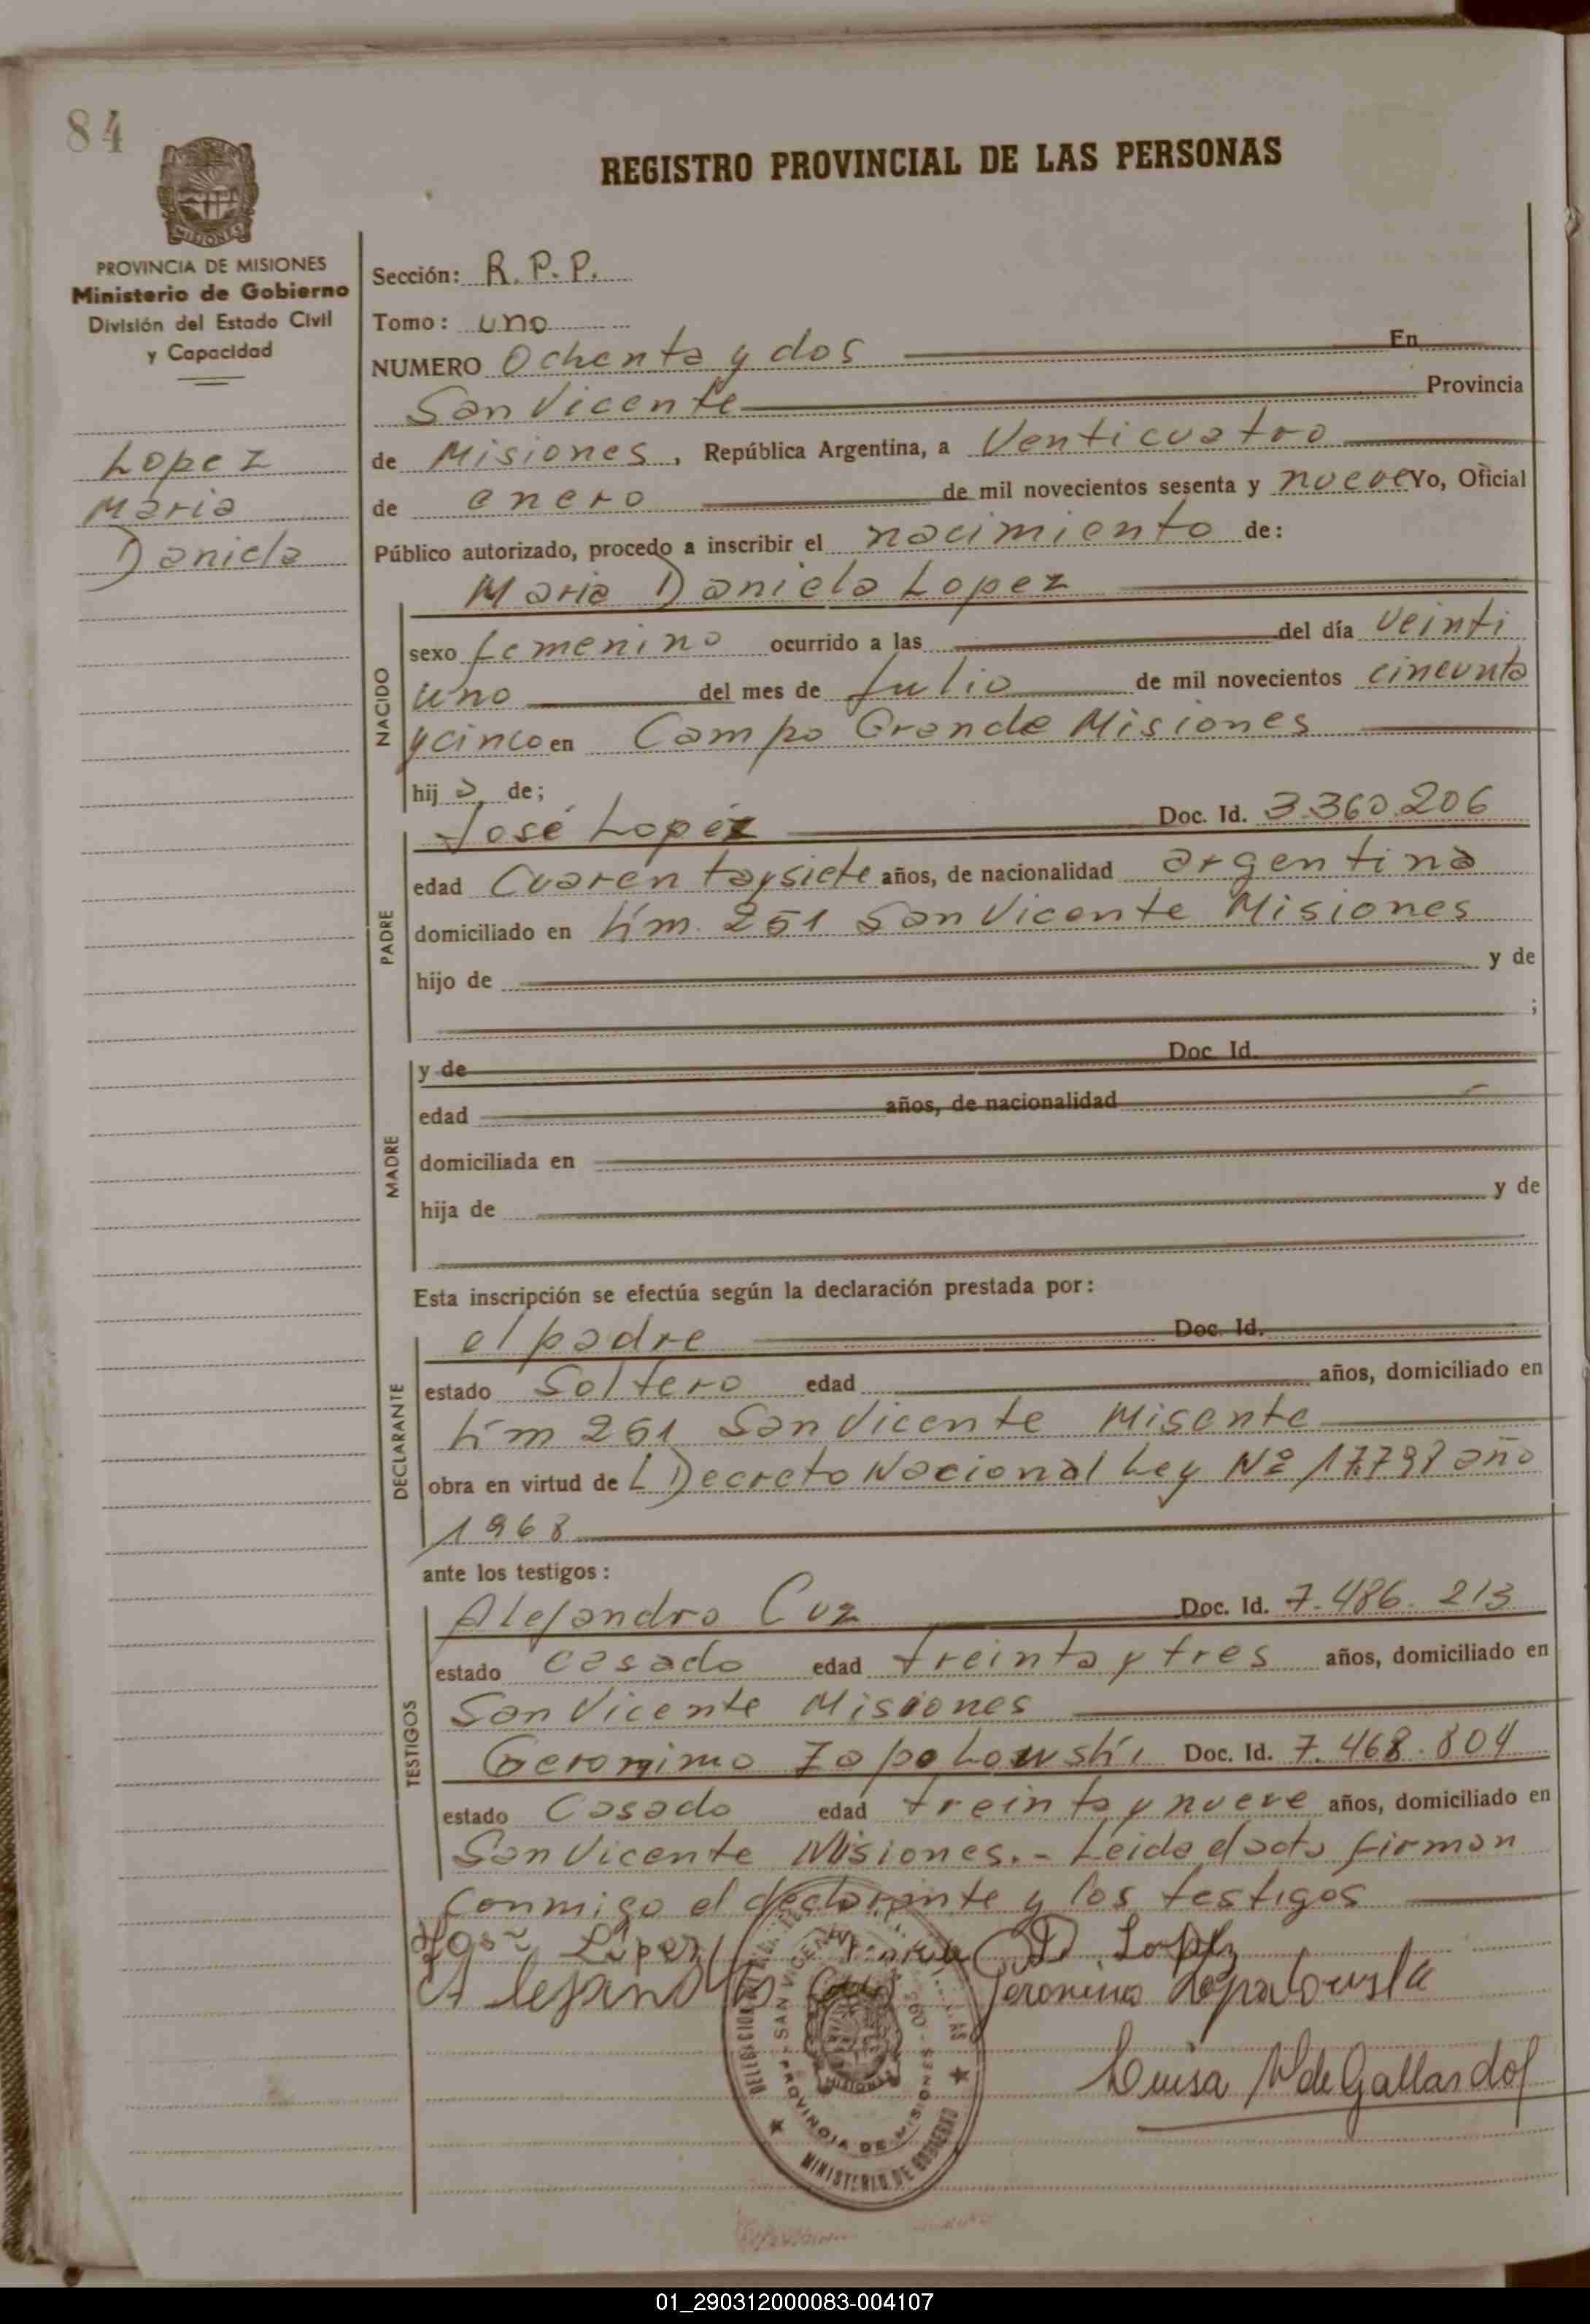 84
REGISTRO PROVINCIAL DE LAS PERSONAS
MISIONES
PROVINCIA DE MISIONES
Ministerio de Gobierno
División del Estado Civil
y Capacidad
Lopez
Maria
Daniela
Sección: R. P. P.
Tomo: uno
NUMERO Ochenta y dos En
San Vicente Provincia
de Misiones, República Argentina, a Venticuatro
de enero de mil novecientos sesenta y nueve Yo, Oficial
Público autorizado, procedo a inscribir el nacimiento de:
Maria Daniela Lopez
NACIDO
sexo femenino ocurrido a las del día veinti
uno del mes de Julio de mil novecientos cincunta
y cinco en Campo Grande Misiones
hij a de;
PADRE
José Lopéz Doc. Id. 3.360.206
edad Cuarentaysiete años, de nacionalidad argentina
domiciliado en km. 251 San Vicente Misiones
hijo de y de
;
MADRE
y de Doc. Id.
edad años, de nacionalidad
domiciliada en
hija de y de
Esta inscripción se efectúa según la declaración prestada por:
DECLARANTE
el padre Doc. Id.
estado Soltero edad años, domiciliado en
km 251 San Vicente Misente
obra en virtud de L Decreto Nacional Ley Nº 17.797 año
1968
ante los testigos:
TESTIGOS
Alejandro Cuz Doc. Id. 7.486.213
estado casado edad treinta y tres años, domiciliado en
San Vicente Misiones
Geronimo Zapolowski Doc. Id. 7.468.804
estado Casado edad treinta y nueve años, domiciliado en
San Vicente Misiones.- Leida el acta firman
conmigo el declarante y los testigos
López D. Lopez
Alejandro Geronimo
Luisa N de Gallardo
SAN VICENTE
PROVINCIA DE MISIONES
MINISTERIO DE GOBIERNO
01_290312000083-004107